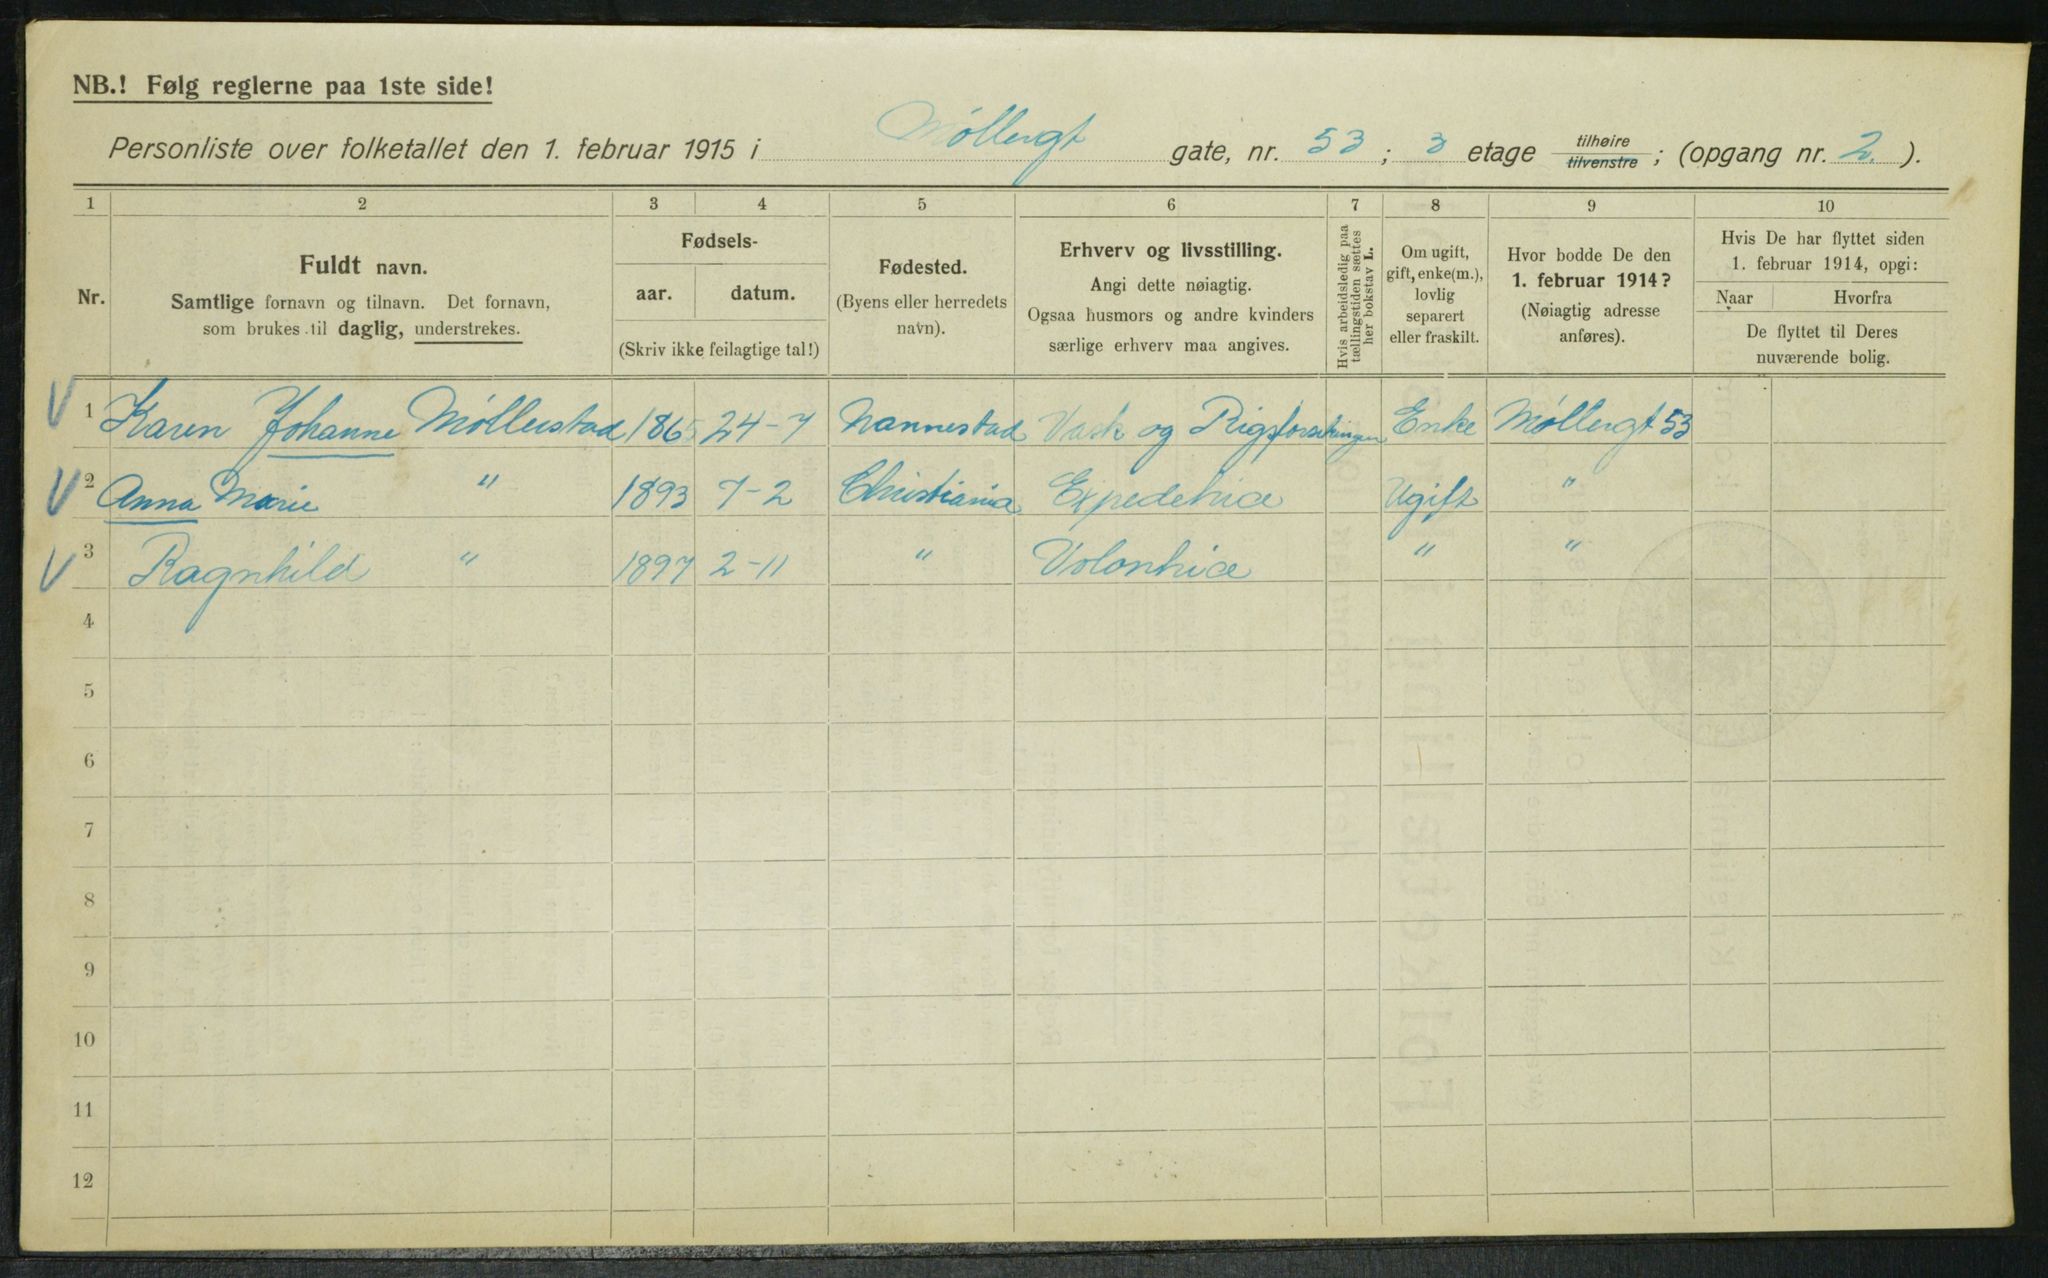 NB.! Følg reglerne paa 1ste side!
Personliste over folketallet den 1. februar 1915 i Møllergt gate, nr. 53; 3 etage tilhøire tilvenstre; (opgang nr. 2.).
1 2 3 4 5 6 7 8 9 10
Nr.
Fuldt navn.
Samtlige fornavn og tilnavn. Det fornavn,
som brukes til daglig, understrekes.
Fødsels-
aar. datum.
(Skriv ikke feilagtige tal!)
Fødested.
(Byens eller herredets
navn).
Erhverv og livsstilling.
Angi dette nøiagtig.
Ogsaa husmors og andre kvinders
særlige erhverv maa angives.
Hvis arbeidsledig paa
tællingstiden sættes
her bokstav L.
Om ugift,
gift, enke(m.),
lovlig
separert
eller fraskilt.
Hvor bodde De den
1. februar 1914?
(Nøiagtig adresse
anføres).
Hvis De har flyttet siden
1. februar 1914, opgi:
Naar Hvorfra
De flyttet til Deres
nuværende bolig.
1 Karen Johanne Møllerstad 1865 24-7 Nannestad Vask og Enke Møllergt 53
2 Anna Marie " 1893 7-2 Christiania Expedetrice Ugift "
3 Ragnhild " 1897 2-11 " Volontrice " "
4
5
6
7
8
9
10
11
12